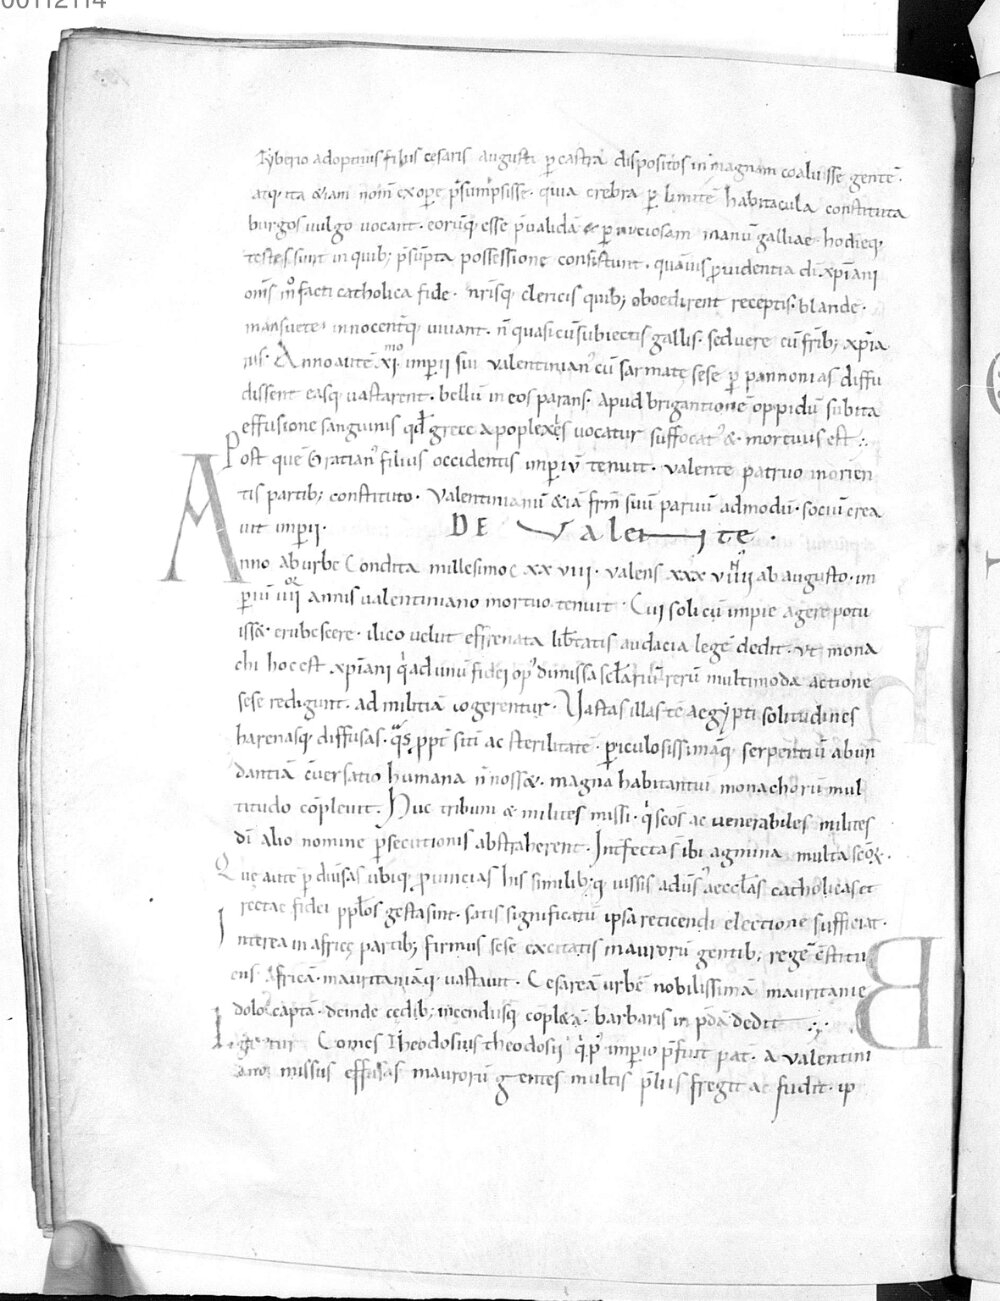 00112114
Tyberio adoptiuis filiis cesaris augusti p̄ castra dispositos in magnam coaluisse gentē.
atq; ita &iam nom̄ ex ope p̄sumpsisse. quia crebra p̄ limitē habitacula constituta
burgos uulgo uocant. eorūq; esse p̄ualidā & p̄niciosam manū galliae. hodieq;
testes sunt in quib; p̄sūpta possessione consistunt. quāuis p̄uidentia dī xp̄iani
om̄s m̊ facti catholica fide. nr̄isq; clericis quib; oboedirent receptis. blande.
mansuete. innocentq; uiuant. n̄ quasi cū subiectis gallis. sed uere cū fr̄ib; xp̄ia
nis. Anno autē xi.mo imp̄ii sui ualentinian' cū sarmatę sese p̄ pannonias diffu
dissent easq; uastarent. bellū in eos parans. Apud brigantionē oppidū subita
effusione sanguinis qđ grece apoplexis uocatur suffocat' &. mortuus est.
Post quē Gratian' filius occidentis imp̄iū tenuit. ualente patruo in orien
tis partib; constituto. Valentinianū &iā fr̄m suū paruū admodū. sociū crea
uit imp̄ii.
DE ValeNte.
Anno ab urbe Condita millesimo c xx viii. ualens xxx viiii ab augusto. im
p̄iū iiii annis ualentiniano mortuo tenuit. Cui soli cū impie agere potu
iss&. erubescere. ilico uelut effrenata lib̄tatis audacia legē dedit. ut mona
chi hoc est xp̄iani q̄ ad unū fidei op' dimissa sēclariū rerū multimoda actione
sese redigunt. ad militiā cogerentur. Vastas illas tē aegypti solitudines
harenasq; diffusas. q̄s ppt̄ sitī ac sterilitatē. p̄iculosissimāq; serpentiū abun
dantiā cūersatio humana n̄ noss&. magna habitantiū monachorū mul
titudo cōpleuit. Huc tribuni & milites missi. q̄ sc̄os ac uenerabiles milites
dī alio nomine p̄secutionis abstraherent. Intfectasibi agmina multa sc̄orꝝ.
Que autē p̄ diuīsas ubiq; prouincias his similib; q; iussis adūs' aeccl̄as catholicas et
rectae fidei ppl̄os gesta sint. satis significatū ipsa reticendi electione sufficiat.
Interea in africę partib; firmus sese excitatis maurorū gentib; regē cōstitu
ens. Africā. mauritaniāq; uastauit. Cesareā urbē nobilissimā mauritanie
dolo captā. deinde cędib; incendiisq; cōpl&ā. barbaris in p̄dā dedit
Igitur Comes Theodosius theodosii q̄ p' imperio p̄fuit pat'. a ualentini
ano missus effusas maurorū gentes multis p̄liis fregit ac fudit. ip